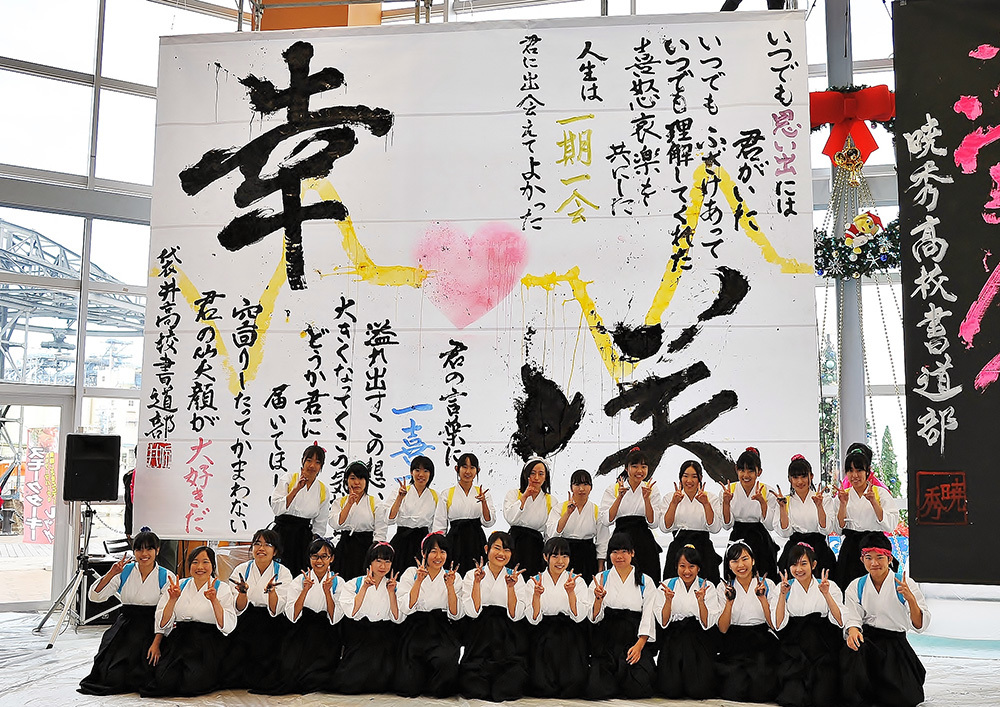 いつでも思い出には
君がいた
いつでもふざけあって
いつでも理解してくれた
喜怒哀楽を
共にした
人生は
一期一会
君に出会えてよかった
幸
咲
君の言葉に
一喜
溢れ出すこの想い
大きくなってくこの気
どうか君に
届いてほし
空回りしたってかまわない
君の笑顔が
大好きだ
袋井高校書道部
暁秀高校書道部
暁秀